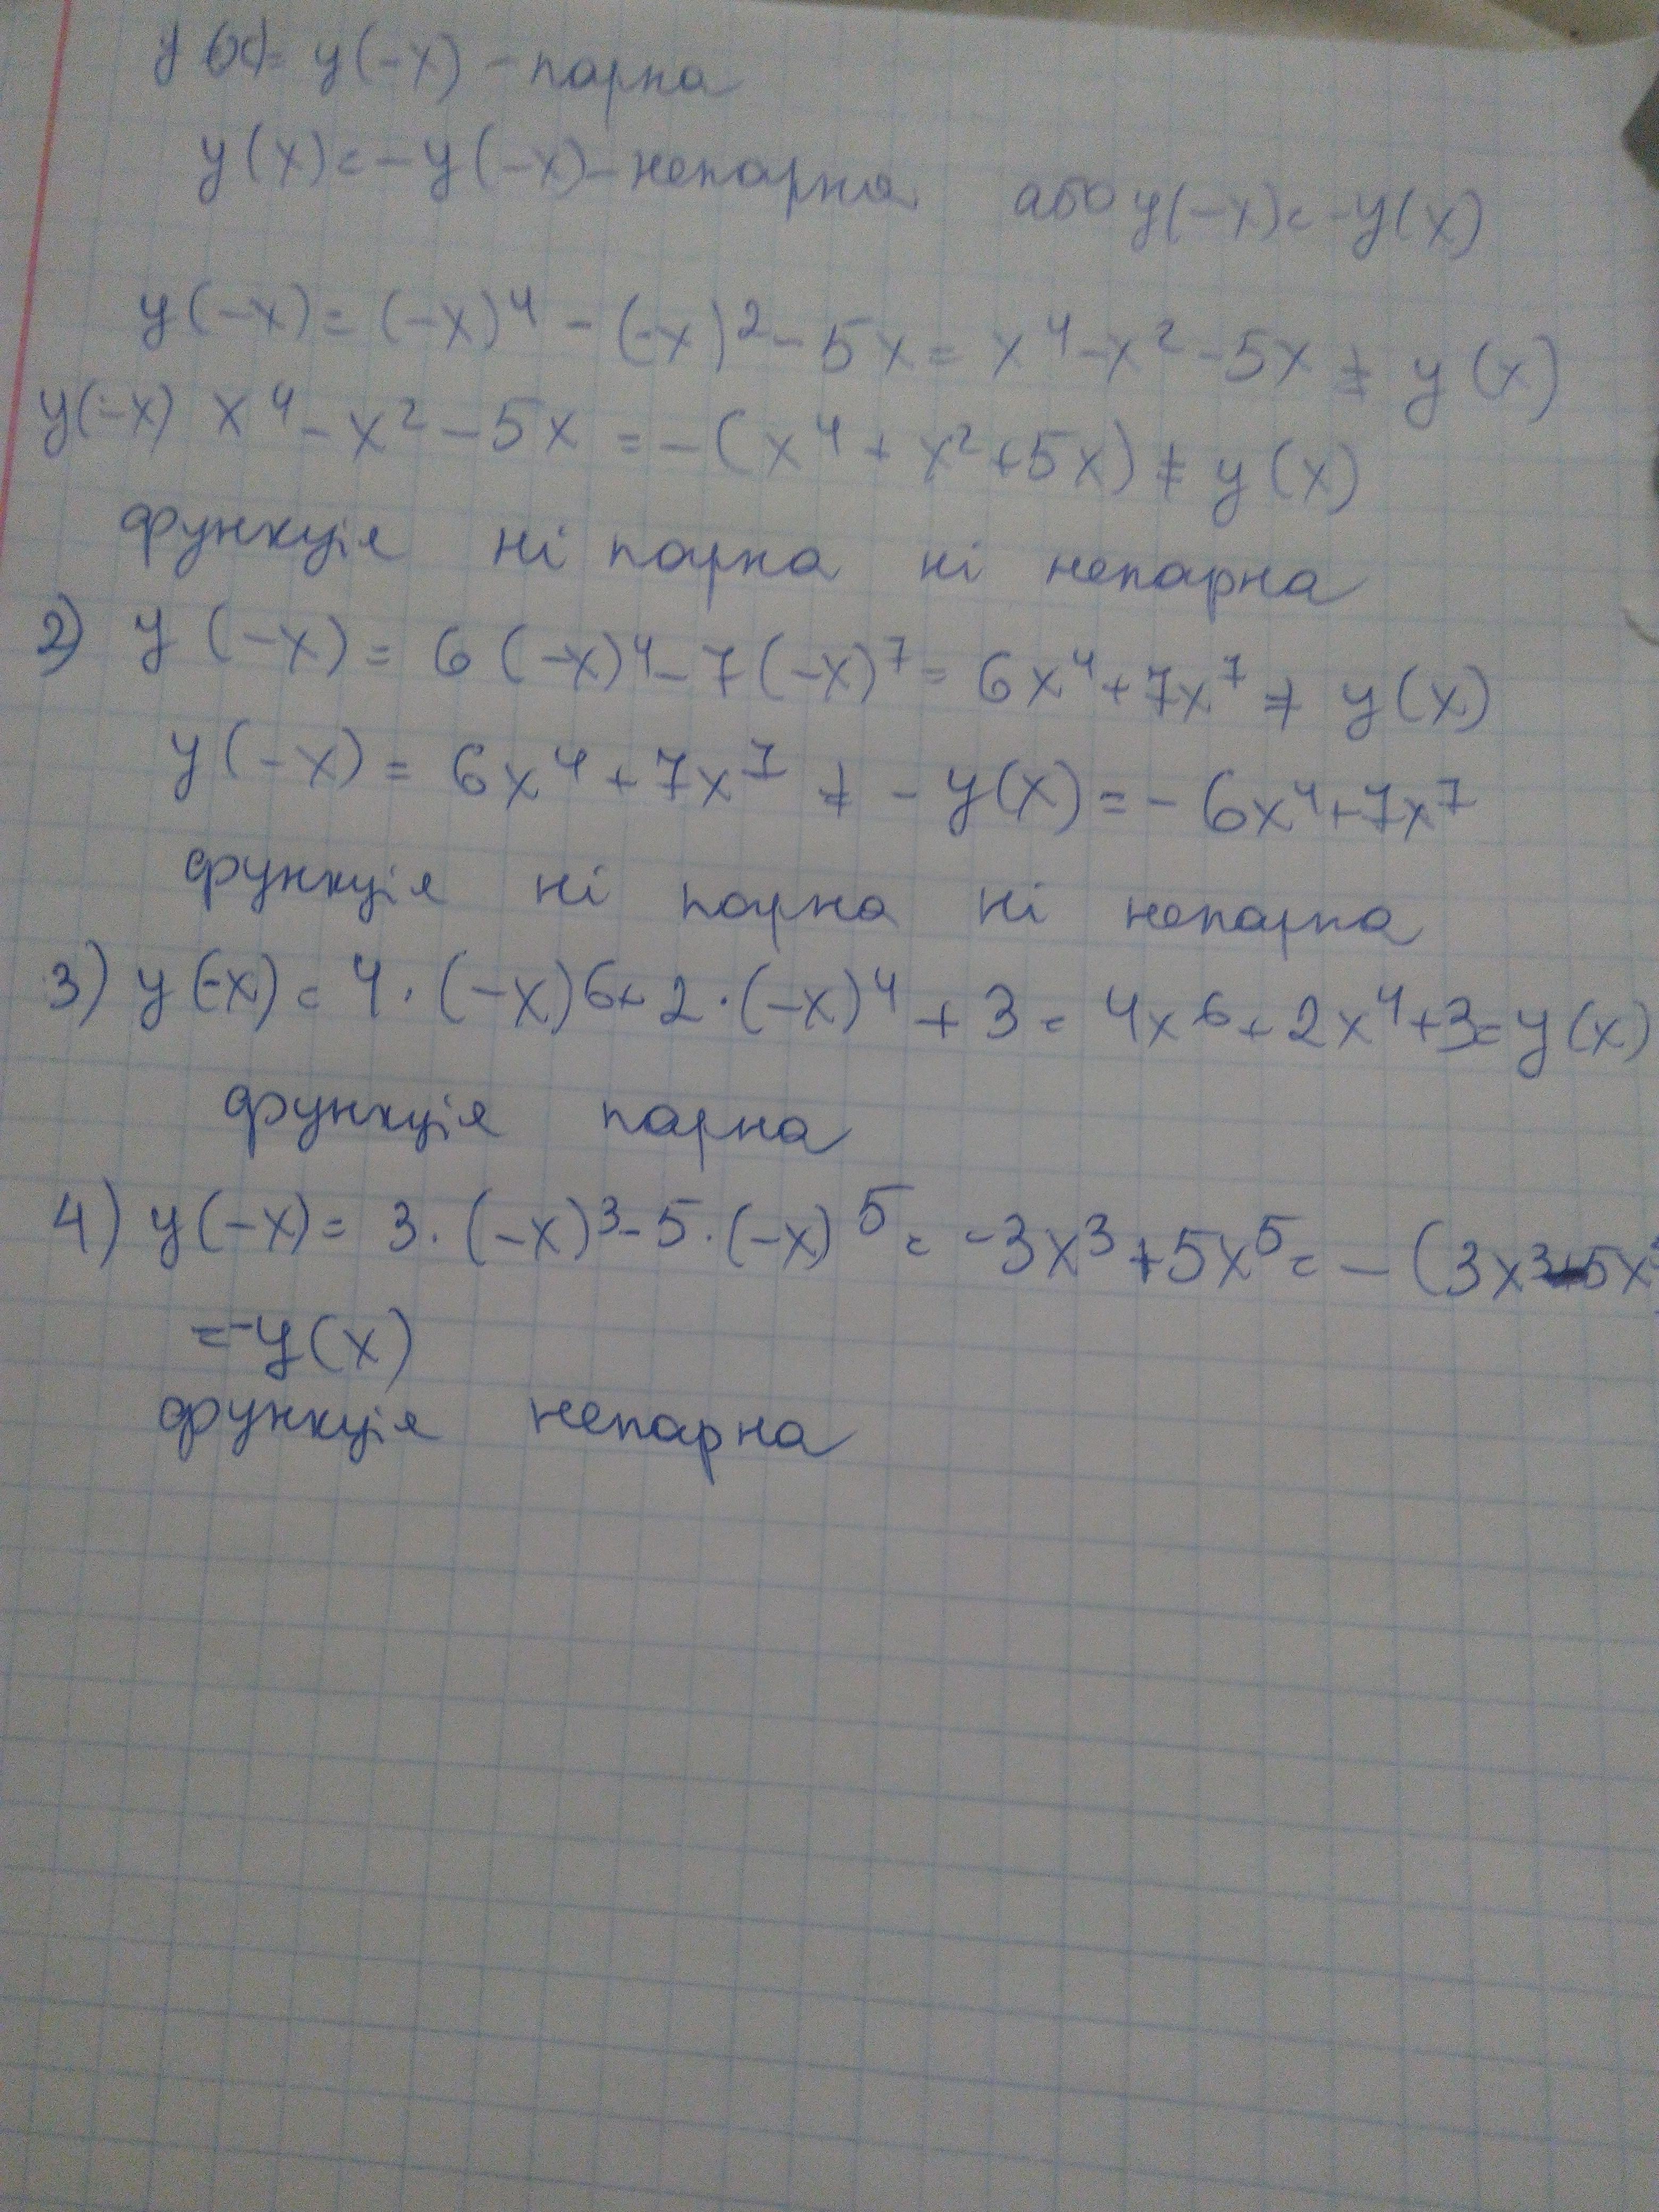 y(x)= y(-x) - парна
y(x)= -y(-x) - непарна або y(-x)= -y(x)
y(-x)= (-x)⁴ - (-x)² - 5x = x⁴ - x² - 5x ≠ y(x)
y(-x) x⁴ - x² - 5x = -(x⁴ + x² + 5x) ≠ y(x)
функція ні парна ні непарна
2) y(-x) = 6(-x)⁴ - 7(-x)⁷ = 6x⁴ + 7x⁷ ≠ y(x)
y(-x) = 6x⁴ + 7x⁷ ≠ - y(x) = - 6x⁴ + 7x⁷
функція ні парна ні непарна
3) y(-x) = 4 · (-x)⁶ + 2 · (-x)⁴ + 3 = 4x⁶ + 2x⁴ + 3 = y(x)
функція парна
4) y(-x) = 3 · (-x)³ - 5 · (-x)⁵ = -3x³ + 5x⁵ = - (3x³ - 5x⁵
= -y(x)
функція непарна